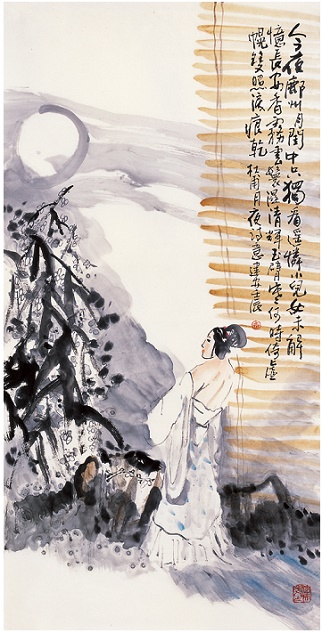 今夜鄜州月閨中只獨看遙憐小兒女未解
憶長安香霧雲鬟濕清輝玉臂寒何時倚虛
幌雙照淚痕乾 杜甫月夜詩意